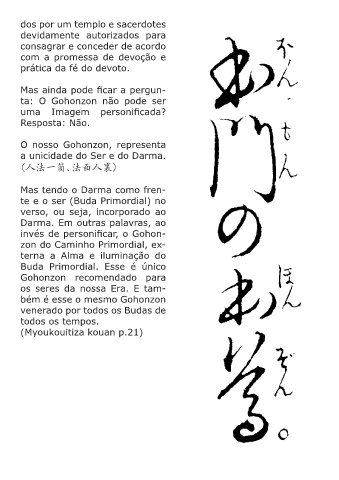 dos por um templo e sacerdotes
devidamente autorizados para
consagrar e conceder de acordo
com a promessa de devoção e
prática da fé do devoto.
Mas ainda pode ficar a pergun-
ta: O Gohonzon não pode ser
uma Imagem personificada?
Resposta: Não.
O nosso Gohonzon, representa
a unicidade do Ser e do Darma.
(人法一箇、法面人裏)
Mas tendo o Darma como fren-
te e o ser (Buda Primordial) no
verso, ou seja, incorporado ao
Darma. Em outras palavras, ao
invés de personificar, o Gohon-
zon do Caminho Primordial, ex-
terna a Alma e iluminação do
Buda Primordial. Esse é único
Gohonzon recomendado para
os seres da nossa Era. E tam-
bém é esse o mesmo Gohonzon
venerado por todos os Budas de
todos os tempos.
(Myoukouitiza kouan p.21)
本門の本尊。
ほん
もん
ほん
ぞん